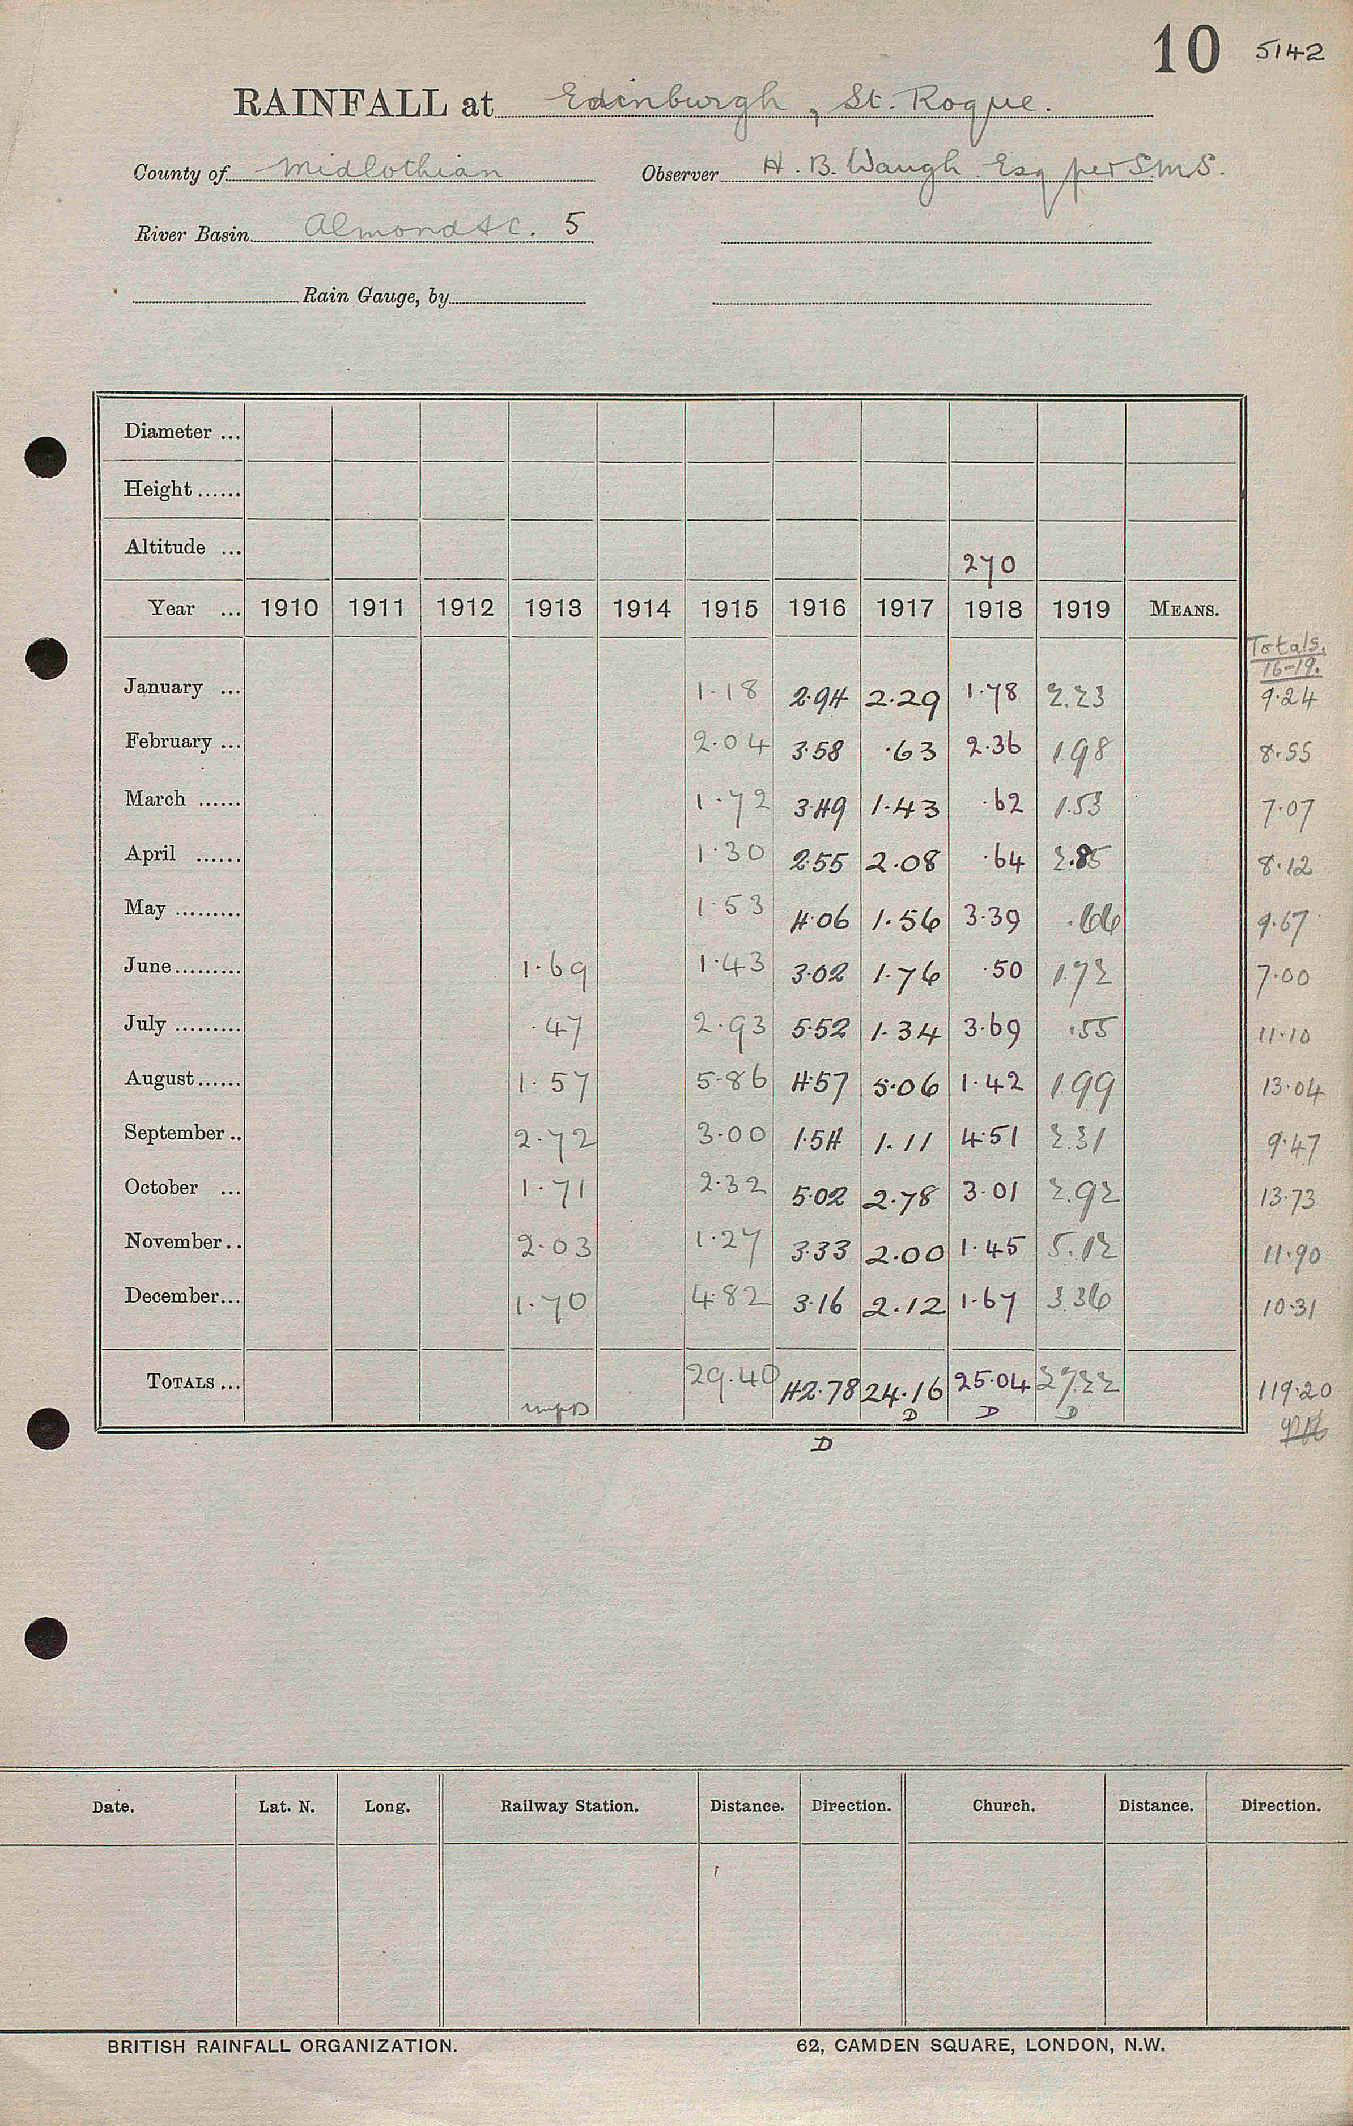 10 5142
RAINFALL at Edinburgh, St. Roque.
County of Midlothian Observer H. B. Waugh Esq per S.M.S.
River Basin Almond &c. 5
Rain Gauge, by
Diameter ...
Height ......
Altitude ... 270
Year ... 1910 1911 1912 1913 1914 1915 1916 1917 1918 1919 MEANS.
Totals.
16-19.
January ... 1.18 2.94 2.29 1.78 2.23 9.24
February ... 2.04 3.58 .63 2.36 1.98 8.55
March ...... 1.72 3.49 1.43 .62 1.53 7.07
April ...... 1.30 2.55 2.08 .64 2.85 8.12
May ......... 1.53 4.06 1.56 3.39 .66 9.67
June ......... 1.69 1.43 3.02 1.76 .50 1.72 7.00
July ......... .47 2.93 5.52 1.34 3.69 .55 11.10
August ...... 1.57 5.86 4.57 5.06 1.42 1.99 13.04
September .. 2.72 3.00 1.54 1.11 4.51 2.31 9.47
October ... 1.71 2.32 5.02 2.78 3.01 2.92 13.73
November .. 2.03 1.27 3.33 2.00 1.45 5.12 11.90
December ... 1.70 4.82 3.16 2.12 1.67 3.36 10.31
TOTALS ... 29.40 42.78 24.16 25.04 27.22 119.20
D D D
D
Date. Lat. N. Long. Railway Station. Distance. Direction. Church. Distance. Direction.
BRITISH RAINFALL ORGANIZATION. 62, CAMDEN SQUARE, LONDON, N.W.